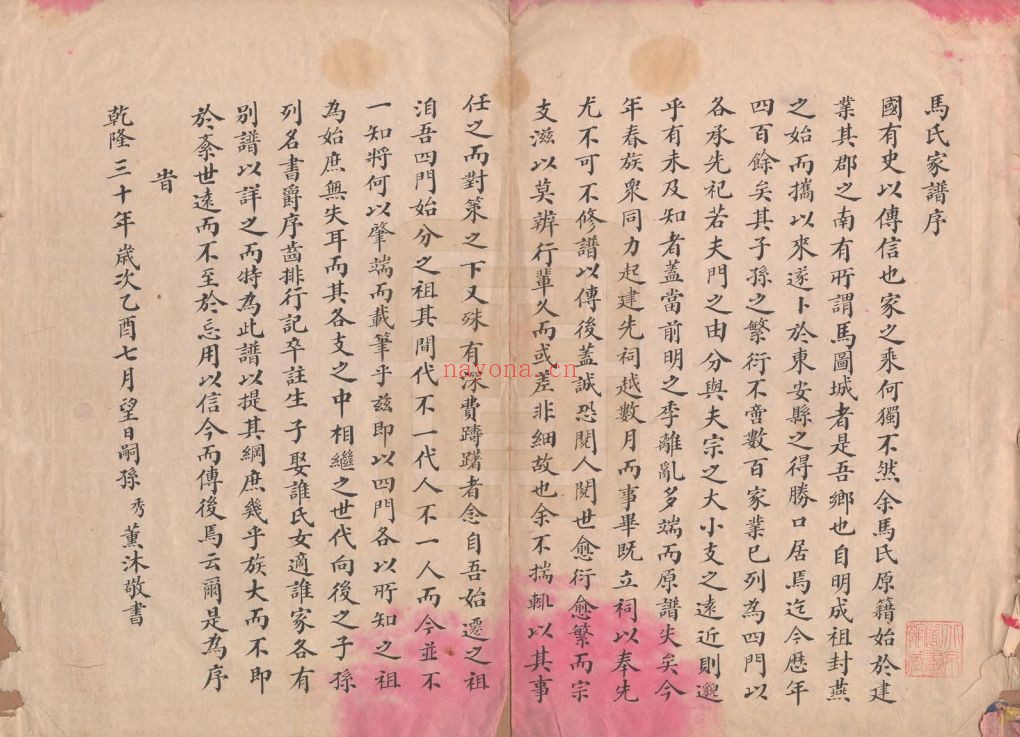 馬氏家譜序
國有史以傳信也家之乘何獨不然余馬氏原籍始於建
業其郡之南有所謂馬圖城者是吾鄉也自明成祖封燕
之始而攜以來遂卜於東安縣之得勝口居焉迄今歷年
四百餘矣其子孫之繁衍不啻數百家業已列為四門以
各承先祀若夫門之由分與夫宗之大小支之遠近則邈
乎有未及知者蓋當前明之季離亂多端而原譜失矣今
年春族衆同力起建先祠越數月而事畢既立祠以奉先
尤不可不修譜以傳後蓋誠恐閱人閱世愈衍愈繁而宗
支滋以莫辨行輩久而或差非細故也余不揣輒以其事
任之而對策之下又殊有深費躊躇者念自吾始遷之祖
洎吾四門始分之祖其間代不一代人不一人而今並不
一知將何以肇端而載筆乎茲即以四門各以所知之祖
為始庶無失耳而其各支之中相繼之世代向後之子孫
列名書爵序齒排行記卒註生子娶誰氏女適誰家各有
別譜以詳之而特為此譜以提其綱庶幾乎族大而不即
於紊世遠而不至於忘用以信今而傳後焉云爾是為序
旹
乾隆三十年歲次乙酉七月望日嗣孫秀薰沐敬書
nayona.cn